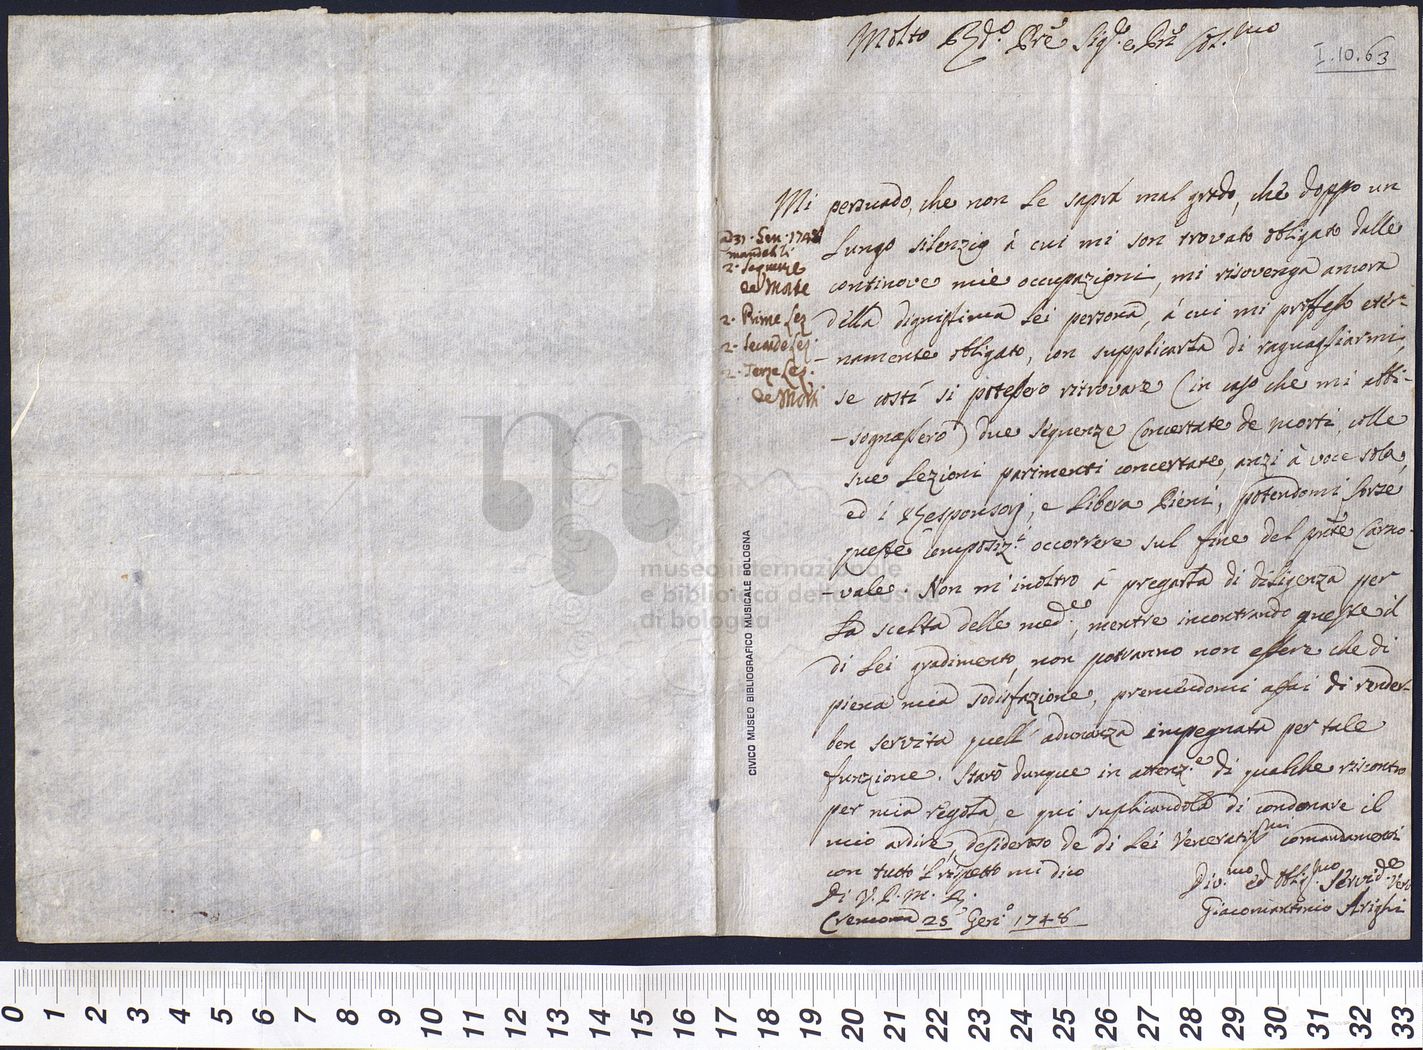 Molto R.do Pre Sig.e e Prõ Col.mo
I.10.63
Mi persuado, che non Le saprà mal grado, che doppo un
Lungo silenzio à cui mi son trovato obligato dalle
continove mie occupazioni, mi risovenga ancora
della dignissima Lei persona, à cui mi professo eter-
-namente obligato, con supplicarla di raguagliarmi,
se costì si potessero ritrovare (in caso che mi abbi-
-sognassero) due sequenze concertate de morti, colle
sue Lezioni parimenti concertate, anzi à voce sola,
ed i Responsorj, e Libera Pieni, potendomi forse
queste composiz.i occorrere sul fine del pnte Carno-
-vale. Non m'inoltro à pregarla di diligenza per
La scelta delle med.e, mentre incontrando queste il
di Lei gradimento, non potranno non essere che di
piena mia sodisfazione, premendomi assai di render
ben servita quell'adunanza impegnata per tale
funzione. Starò dunque in attenz.e di qualche riscontro
per mia regola, e qui suplicandola di condonare il
mio ardire, desideroso de di Lei Veneratiss.mi comandamenti
con tutto L rispetto mi dico
Di V. P. M. R.
Cremona 25 Gen.o 1748
Div.mo ed obblig.mo Servid.e Vero
Giacomantonio Arighi
ad 31. Gen. 1748
mandatili
2. Sequenze
de Morti
2. Prime Lez
2. Seconde Lez.
2. Terze Lez.
de Morti
CIVICO MUSEO BIBLIOGRAFICO MUSICALE BOLOGNA
museo internazionale
e biblioteca della musica
di bologna
0 1 2 3 4 5 6 7 8 9 10 11 12 13 14 15 16 17 18 19 20 21 22 23 24 25 26 27 28 29 30 31 32 33